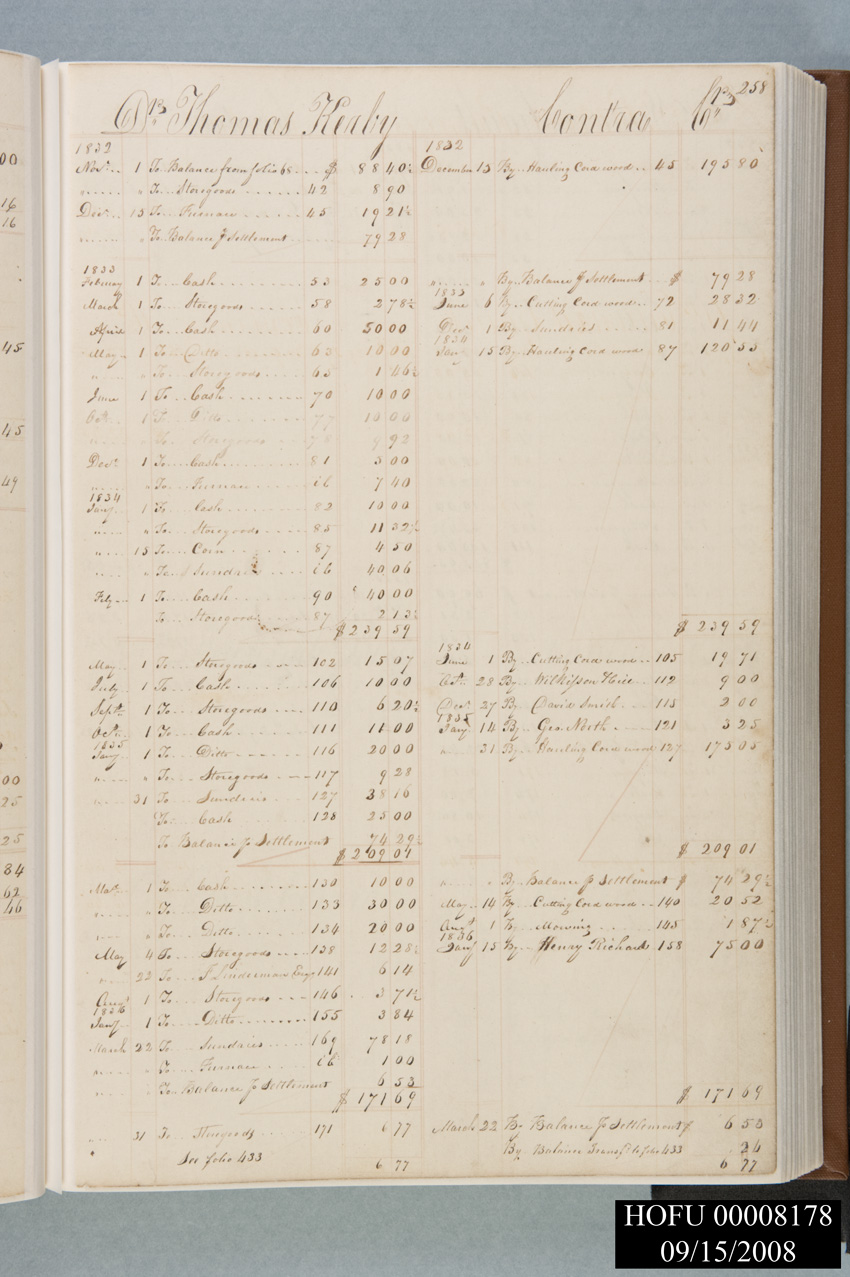 258
Dr. Thomas Kerby Contra Cr.
1832
Novr. 1 To Balance from folio 68 $ 88 40½
" " To Storegoods 42 8 90
Decr. 13 To Furnace 45 19 21½
" " To Balance Settlement 79 28
1833
February 1 To Cash 53 25 00
March 1 To Storegoods 58 2 78½
April 1 To Cash 60 50 00
May 1 To Ditto 63 10 00
" " To Storegoods 65 1 46½
June 1 To Cash 70 10 00
Oct. 1 To Ditto 77 10 00
To Storegoods 78 9 92
Decr. 1 To Cash 81 5 00
" " To Furnace ib 7 40
1834
Jany. 1 To Cash 82 10 00
" " To Storegoods 85 11 32½
" 15 To Corn 87 4 50
" " To Sundries ib 40 06
Feby. 1 To Cash 90 40 00
To Storegoods 87 2 13½
$ 239 59
May 1 To Storegoods 102 15 07
July 1 To Cash 106 10 00
Septr. 1 To Storegoods 110 6 20½
Oct. 1 To Cash 111 11 00
1835
Jany. 1 To Ditto 116 20 00
" " To Storegoods 117 9 28
" 31 To Sundries 127 38 16
To Cash 128 25 00
To Balance Settlement 74 29½
$ 209 01
Mar. 1 To Cash 130 10 00
" " To Ditto 133 30 00
" " To Ditto 134 20 00
May 4 To Storegoods 138 12 28½
" 22 To Linderman 141 6 14
Augt. 1 To Storegoods 146 3 71½
1836
Jany. 1 To Ditto 155 3 84
March 22 To Sundries 169 78 18
" " To Furnace ib 1 00
" " To Balance Settlement 6 53
$ 171 69
" 31 To Storegoods 171 6 77
See folio 433 6 77
1832
December 13 By Hauling Cord wood 45 195 80
" " By Balance Settlement $ 79 28
1833
June 6 By Cutting Cord wood 72 28 32
Decr. 1 By Sundries 81 11 44
1834
Jany. 15 By Hauling Cord wood 87 120 55
$ 239 59
1834
June 1 By Cutting Cord wood 105 19 71
Oct. 28 By Wilkisson Hice 112 9 00
Decr. 27 By David Smith 115 2 00
1835
Jany. 14 By Geo. North 121 3 25
" 31 By Hauling Cord wood 127 175 05
$ 209 01
" " By Balance Settlement $ 74 29½
May 14 By Cutting Cord wood 140 20 52
Augt. 1 By Mowing 145 1 87½
1836
Jany. 15 By Henry Richards 158 75 00
$ 171 69
March 22 By Balance Settlement $ 6 53
By Balance Transfd. to folio 433 24
6 77
00
16
16
45
45
49
00
25
25
84
62
46
HOFU 00008178
09/15/2008